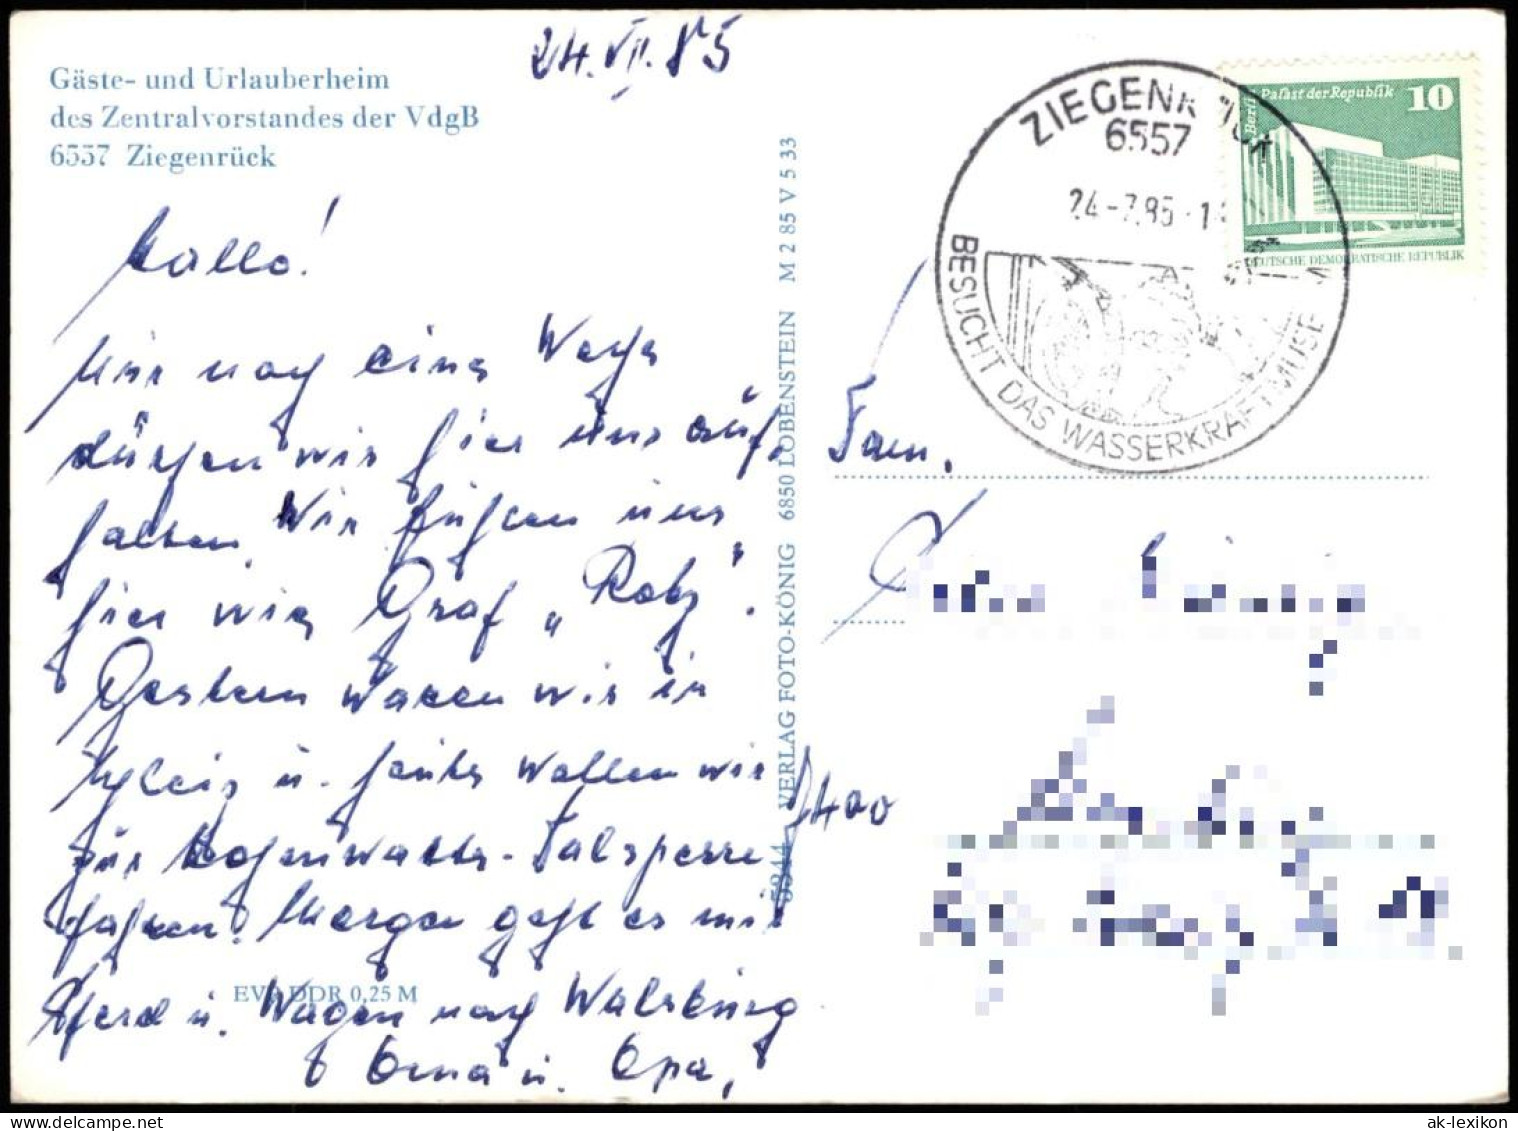 24. VII. 85
Gäste- und Urlauberheim
des Zentralvorstandes der VdgB
6557 Ziegenrück
Hallo!
Nur noch eine Woche
dürfen wir hier uns auf-
halten. Wir fühlen uns
hier wie Graf „Rotz“.
Gestern waren wir in
u. heute wollen wir
zur Hohenwarte-Talsperre
fahren. Morgen geht es mit
Pferd u. Wagen nach Walsburg
Oma u. Opa,
EVP DDR 0,25 M
5344 VERLAG FOTO-KÖNIG 6850 LOBENSTEIN M 2 85 V 5 33
ZIEGENRÜCK
6557
24.-7.85-1
BESUCHT DAS WASSERKRAFTMUSEUM
Berlin Palast der Republik 10
DEUTSCHE DEMOKRATISCHE REPUBLIK
Fam.
7400
ak-lexikon